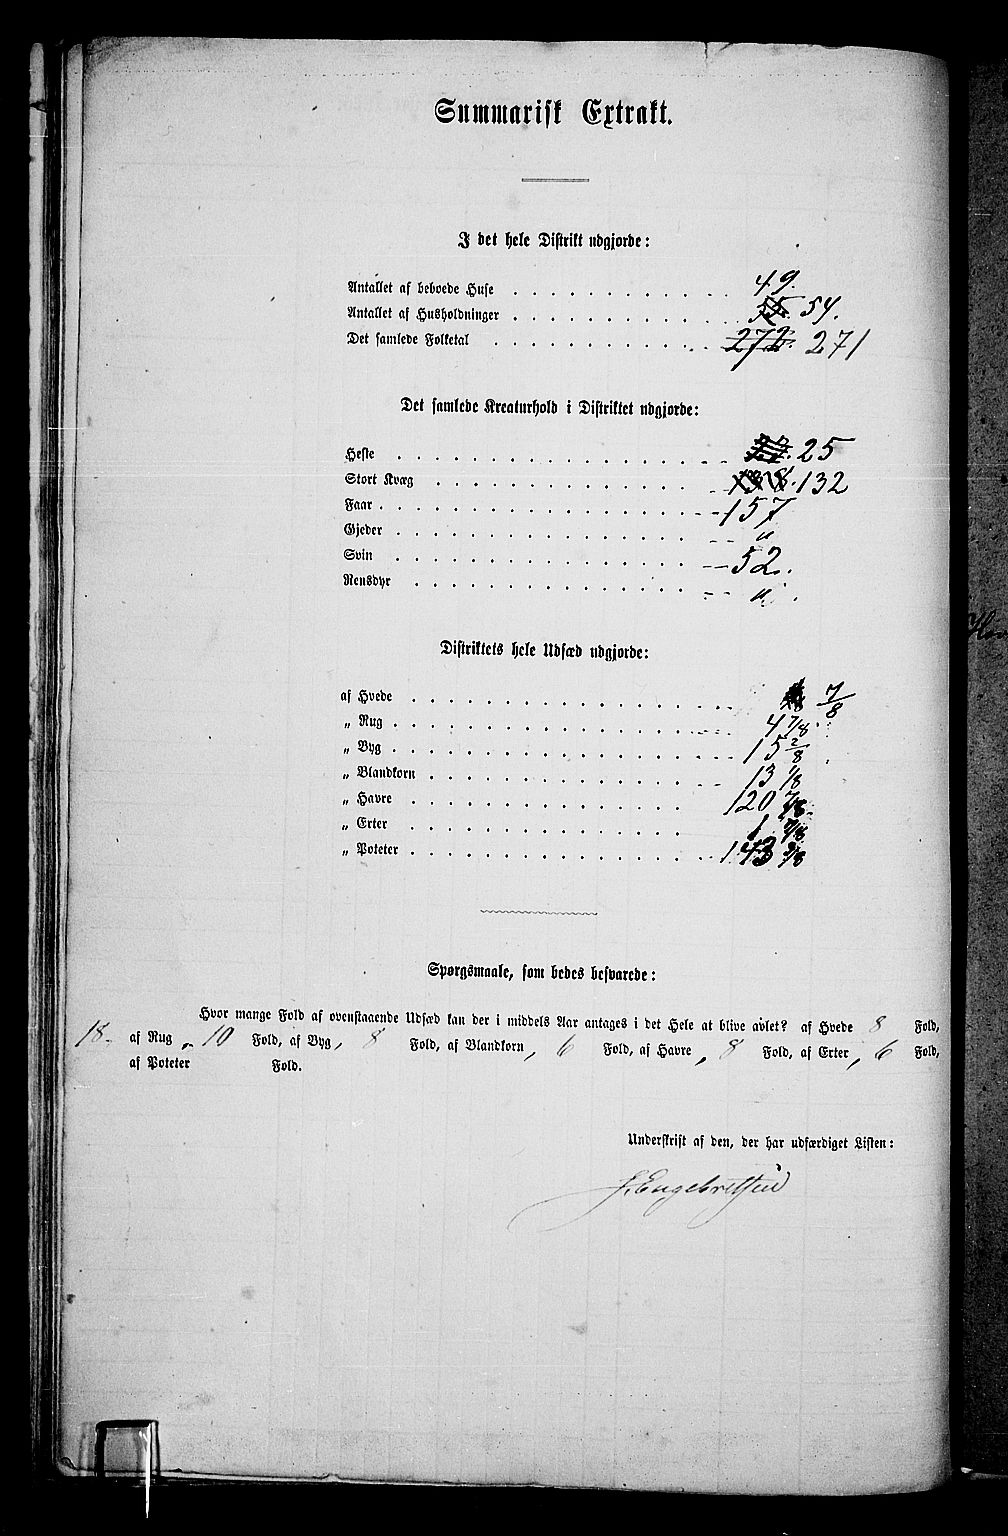 Summarisk Extrakt.
I det hele Distrikt udgjorde:
Antallet af beboede Huse . . . . . . . . . . 49.
Antallet af Husholdninger . . . . . . . . . . 54.
Det samlede Folketal . . . . . . . . . . 272. 271
Det samlede Kreaturhold i Distriktet udgjorde:
Heste . . . . . . . . . . 25
Stort Kvæg . . . . . . . . . . 138. 132
Faar . . . . . . . . . . 157
Gjeder . . . . . . . . . . "
Svin . . . . . . . . . . 52.
Rensdyr . . . . . . . . . . "
Distriktets hele Udsæd udgjorde:
af Hvede . . . . . . . . . . 7/8
„ Rug . . . . . . . . . . 4 7/8.
„ Byg . . . . . . . . . . 15 2/8
„ Blandkorn . . . . . . . . . . 13 1/8
„ Havre . . . . . . . . . . 120 7/8.
„ Erter . . . . . . . . . . 1 7/8
„ Poteter . . . . . . . . . . 143 3/8
Spørgsmaale, som bedes besvarede:
Hvor mange Fold af ovenstaaende Udsæd kan der i middels Aar antages i det Hele at blive avlet? af Hvede 8 Fold,
18- af Rug, 10 Fold, af Byg, 8 Fold, af Blandkorn, 6 Fold, af Havre, 8 Fold, af Erter, 6 Fold,
af Poteter Fold.
Underskrift af den, der har udfærdiget Listen:
J. Engebretsen